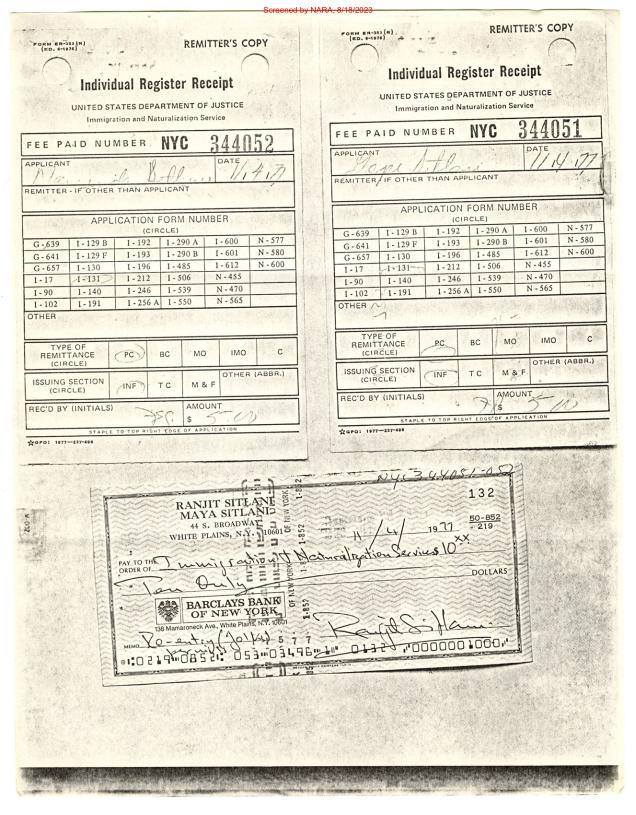 Screened by NARA, 8/18/2023
FORM ER-353 (R)
(ED. 6-1976)
REMITTER'S COPY
Individual Register Receipt
UNITED STATES DEPARTMENT OF JUSTICE
Immigration and Naturalization Service
FEE PAID NUMBER NYC 344052
APPLICANT
DATE
11.4.77
REMITTER - IF OTHER THAN APPLICANT
APPLICATION FORM NUMBER
(CIRCLE)
G-639 I-129 B I-192 I-290 A I-600 N-577
G-641 I-129 F I-193 I-290 B I-601 N-580
G-657 I-130 I-196 I-485 I-612 N-600
I-17 I-131 I-212 I-506 N-455
I-90 I-140 I-246 I-539 N-470
I-102 I-191 I-256 A I-550 N-565
OTHER
TYPE OF
REMITTANCE
(CIRCLE)
PC BC MO IMO C
ISSUING SECTION
(CIRCLE)
INF T C M & F
OTHER (ABBR.)
REC'D BY (INITIALS)
AMOUNT
$
STAPLE TO TOP RIGHT EDGE OF APPLICATION
☆GPO: 1977-237-498
FORM ER-353 (R)
(ED. 6-1976)
REMITTER'S COPY
Individual Register Receipt
UNITED STATES DEPARTMENT OF JUSTICE
Immigration and Naturalization Service
FEE PAID NUMBER NYC 344051
APPLICANT
DATE
11.4.77
REMITTER, IF OTHER THAN APPLICANT
APPLICATION FORM NUMBER
(CIRCLE)
G-639 I-129 B I-192 I-290 A I-600 N-577
G-641 I-129 F I-193 I-290 B I-601 N-580
G-657 I-130 I-196 I-485 I-612 N-600
I-17 I-131 I-212 I-506 N-455
I-90 I-140 I-246 I-539 N-470
I-102 I-191 I-256 A I-550 N-565
OTHER
TYPE OF
REMITTANCE
(CIRCLE)
PC BC MO IMO C
ISSUING SECTION
(CIRCLE)
INF T C M & F
OTHER (ABBR.)
REC'D BY (INITIALS)
AMOUNT
$
STAPLE TO TOP RIGHT EDGE OF APPLICATION
☆GPO: 1977-237-498
NYC 344051-052
RANJIT SITLANI
MAYA SITLANI
44 S. BROADWAY
WHITE PLAINS, N.Y. 10601
132
50-852
219
11/4/ 1977
PAY TO THE
ORDER OF Immigration & Naturalization Services 10 xx
Ten Only
DOLLARS
BARCLAYS BANK
OF NEW YORK
136 Mamaroneck Ave., White Plains, N.Y. 10601
MEMO Re-entry
permits
577
Ranjit Sitlani